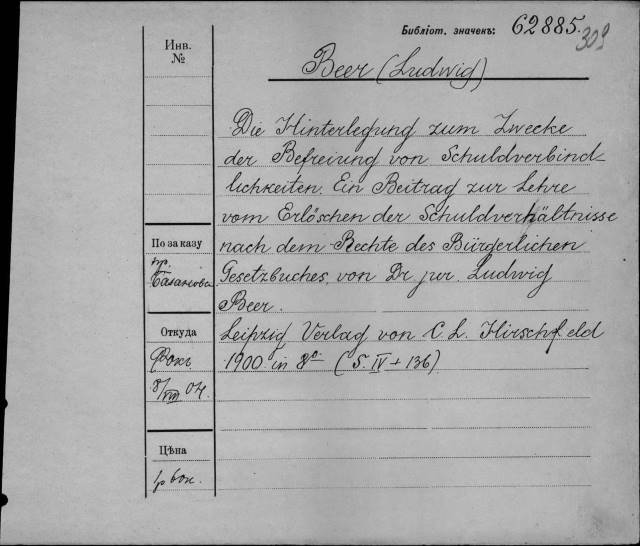 Библіот. значекъ: 62885.
309
Инв.
№
Beer (Ludwig)
Die Hinterlegung zum Zwecke
der Befreiung von Schuldverbind-
lichkeiten. Ein Beitrag zur Lehre
vom Erlöschen der Schuldverhältnisse
nach dem Rechte des Bürgerlichen
Gesetzbuches, von Dr. jur. Ludwig
Beer.
Leipzig Verlag von C. L. Hirschfeld
1900 in 8º (S. IV + 136)
По заказу
пр.
Откуда
Фокъ
8/VIII 04.
Цѣна